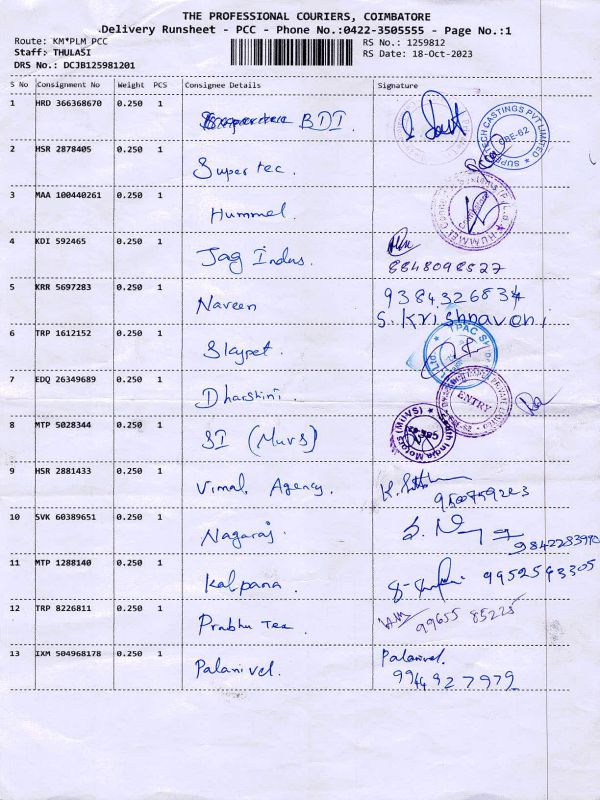 THE PROFESSIONAL COURIERS, COIMBATORE
Delivery Runsheet - PCC - Phone No.:0422-3505555 - Page No.:1
Route: KM*PLM PCC
RS No.: 1259812
Staff: THULASI
RS Date: 18-Oct-2023
DRS No.: DCJB125981201
S No Consignment No Weight PCS Consignee Details Signature
1 HRD 366368670 0.250 1 BDI.
CBE-62
2 HSR 2878405 0.250 1 Super tec.
3 MAA 100440261 0.250 1 Hummel.
4 KDI 592465 0.250 1 Jag Indus. 8848098527
5 KRR 5697283 0.250 1 Naveen 9384326834
S. Krishnaveni
6 TRP 1612152 0.250 1
7 EDQ 26349689 0.250 1 Dharshini.
ENTRY
8 MTP 5028344 0.250 1 SI (MUVS)
South India Motors (MUVS)
9 HSR 2881433 0.250 1 Vimal Agency.
10 SVK 60389651 0.250 1 Nagaraj.
11 MTP 1288140 0.250 1 Kalpana. 9952593305
12 TRP 8226811 0.250 1 Prabhu Tex. 99655 85225
13 IXM 504968178 0.250 1 Palanivel. Palanivel.
9944927979